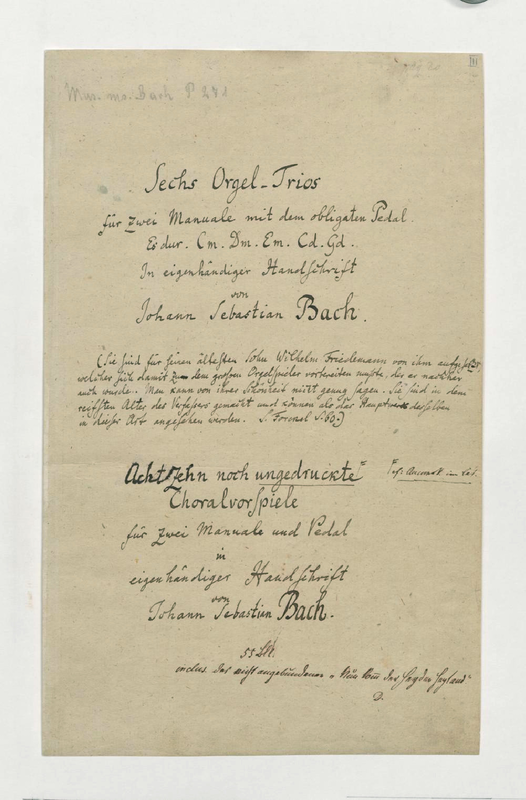 Mus. ms. Bach P 271
Sechs Orgel-Trios
für zwei Manuale mit dem obligaten Pedal.
Es dur. Cm. Dm. Em. Cd. Gd.
In eigenhändiger Handschrift
von
Johann Sebastian Bach.
(Sie sind für seinen ältesten Sohn Wilhelm Friedemann von ihm aufgesetzt,
welcher sich damit zu dem großen Orgelspieler vorbereiten mußte, der er nachher
auch wurde. Man kann von ihrer Schönheit nicht genug sagen. Sie sind in dem
reifsten Alter des Verfassers gemacht und können als das Hauptwerk desselben
in dieser Art angesehen werden. S. Forkel S. 60.)
Achtzehn noch ungedruckte
Choralvorspiele
für zwei Manuale und Pedal
in
eigenhändiger Handschrift
von
Johann Sebastian Bach.
inclus. des nicht angebundenen "Nun kom der Heyden Heyland"